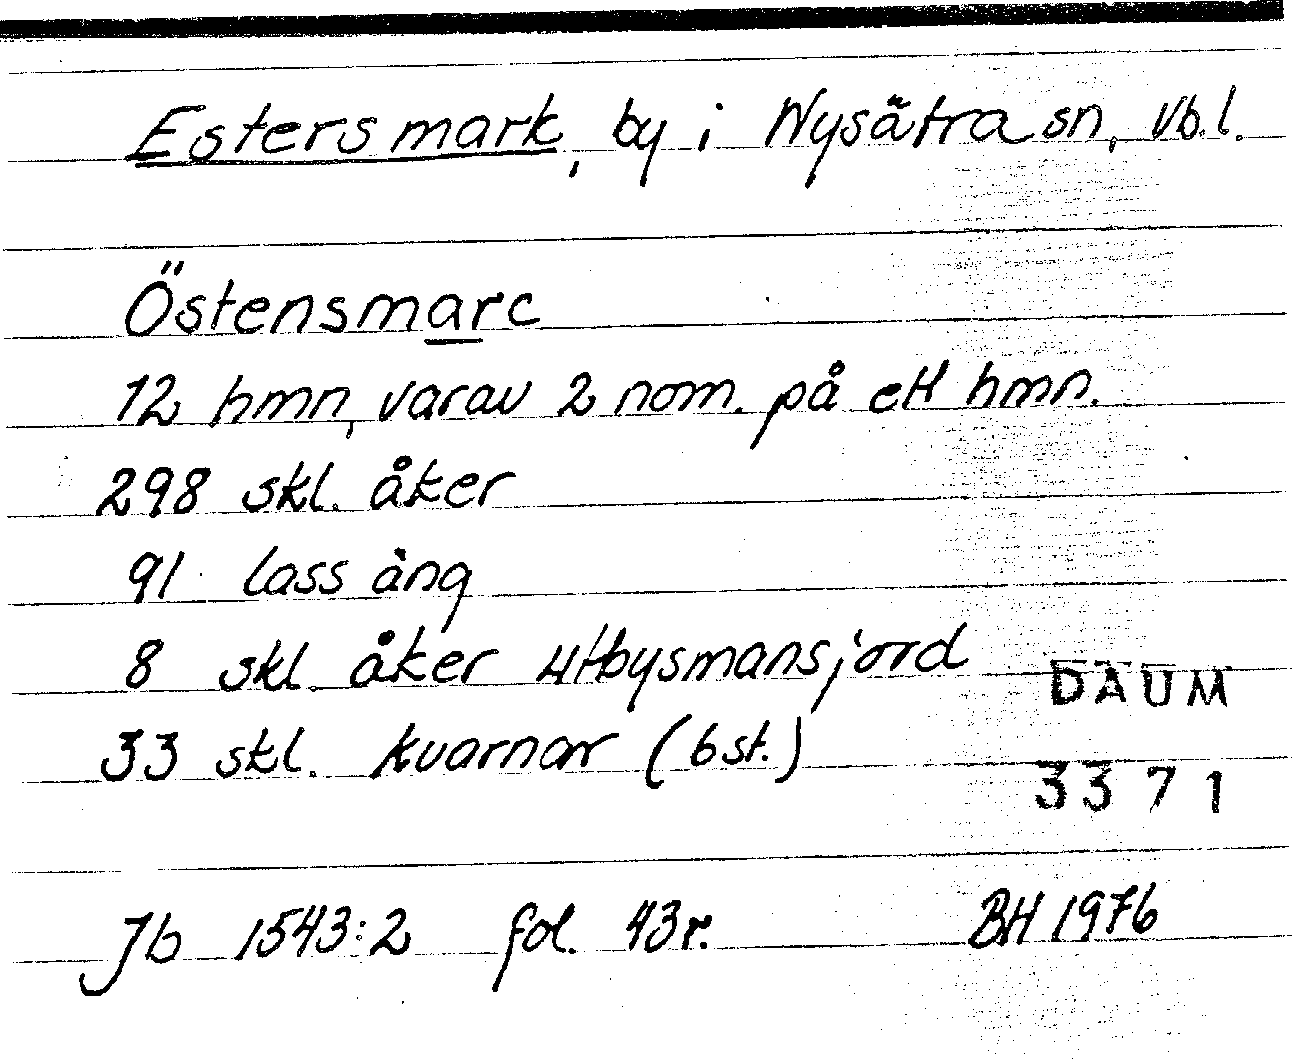 Estersmark, by i Nysätra sn, Vb.l.
Östensmarc
12 hmn, varav 2 nom. på ett hmn.
298 skl. åker
91 lass äng
8 skl. åker utbysmansjord
DAUM
33 skl. kvarnar (6 st.)
3371
Jb 1543:2 fol. 43r. BH 1976